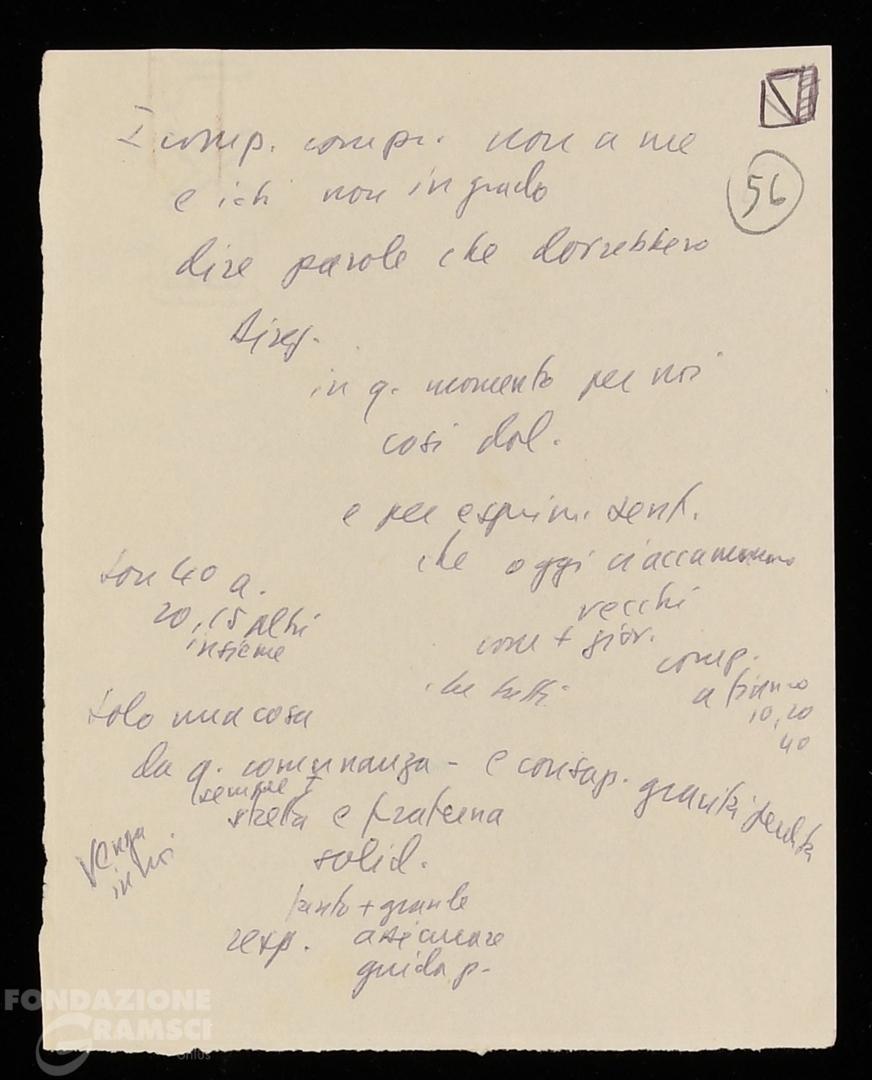 56
I comp. compr. non a me
e non in grado
dire parole che dovrebbero
in q. momento per noi
così dol.
e per esprim. sent.
che oggi ci accomunano
vecchi
come + giov.
che tutti
comp.
a fianco
10, 20
40
40 a.
20, 15 altri
insieme
solo una cosa
da q. comunanza - e consap. gravità perdita
sempre +
stretta e fraterna
solid.
venga
in noi
tanto + grande
resp. assicurare
guida p.
FONDAZIONE
GRAMSCI
onlus